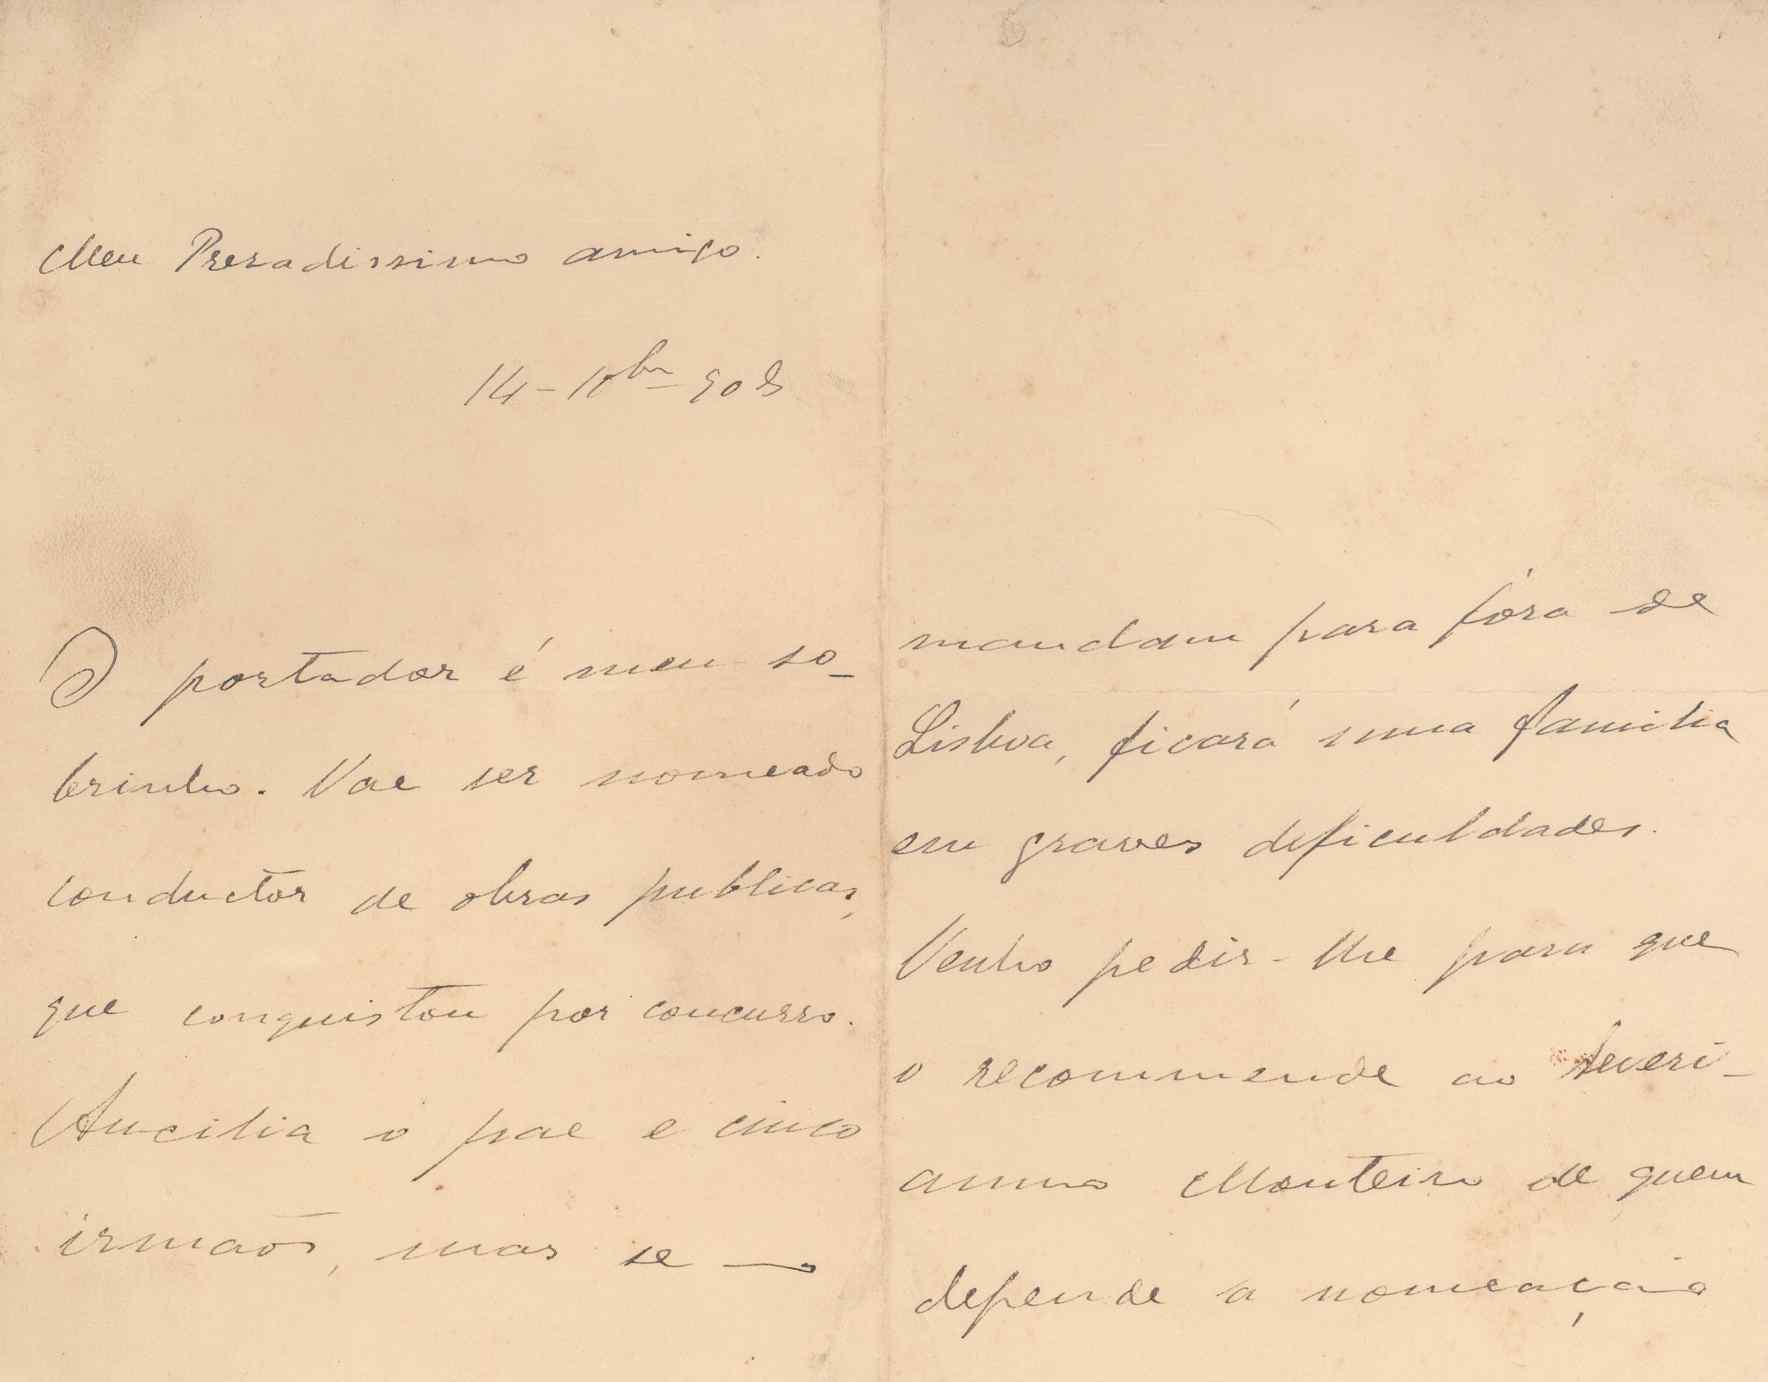 Meu Presadissimo amigo.
14-10bro-908
O portador é meu so-
brinho. Vae ser nomeado
conductor de obras publicas,
que conquistou por concurso.
Auxilia o pae e cinco
irmãos, mas se o
mandam para fóra de
Lisboa, ficará uma familia
em graves deficuldades.
Venho pedir-lhe para que
o recommende ao Severi-
anno Monteiro de quem
depende a nomeação